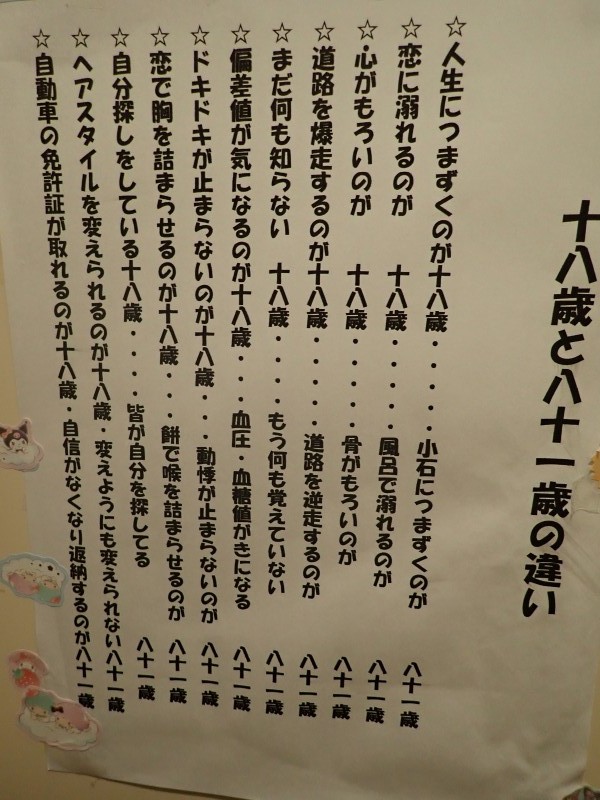 十八歳と八十一歳の違い
☆人生につまずくのが十八歳・・・・・小石につまずくのが 八十一歳
☆恋に溺れるのが 十八歳・・・・・風呂で溺れるのが 八十一歳
☆心がもろいのが 十八歳・・・・・骨がもろいのが 八十一歳
☆道路を爆走するのが十八歳・・・・・道路を逆走するのが 八十一歳
☆まだ何も知らない 十八歳・・・・もう何も覚えていない 八十一歳
☆偏差値が気になるのが十八歳・・・血圧・血糖値がきになる 八十一歳
☆ドキドキが止まらないのが十八歳・・・動悸が止まらないのが 八十一歳
☆恋で胸を詰まらせるのが十八歳・・・餅で喉を詰まらせるのが 八十一歳
☆自分探しをしている十八歳・・・・皆が自分を探してる 八十一歳
☆ヘアスタイルを変えられるのが十八歳・変えようにも変えられない八十一歳
☆自動車の免許証が取れるのが十八歳・自信がなくなり返納するのが八十一歳